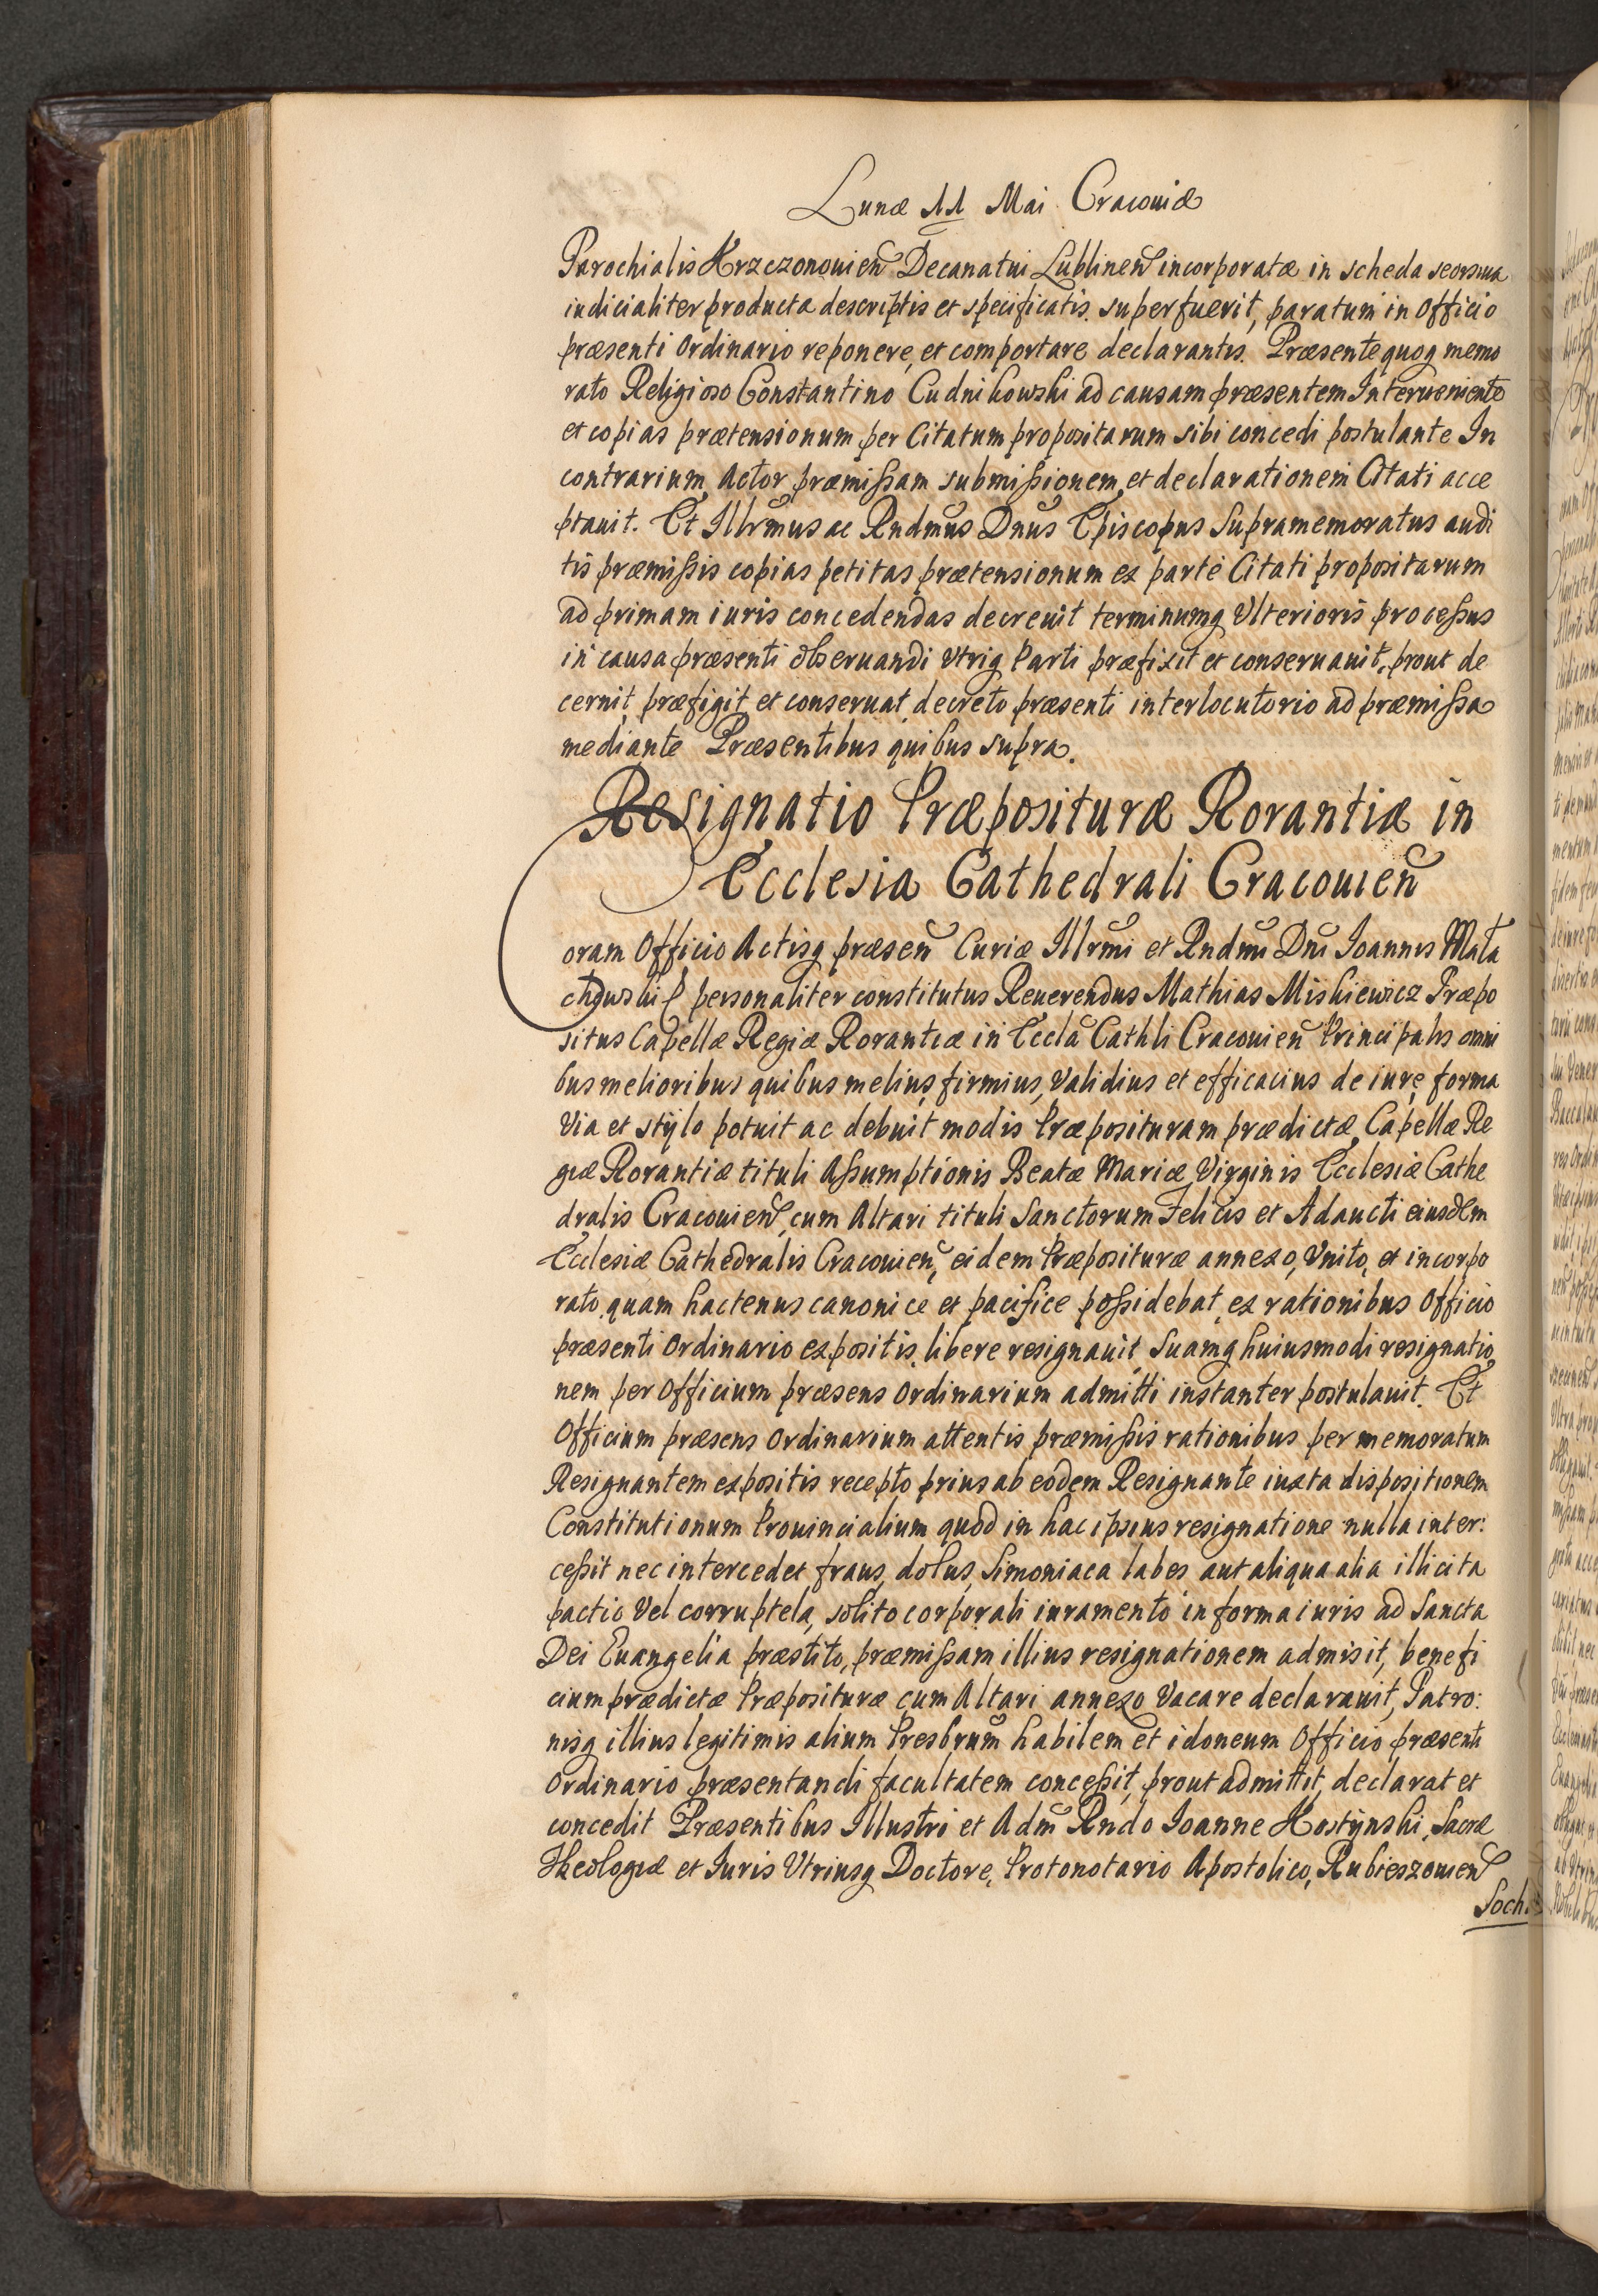 Lunæ 11 Mai Cracouiæ
Parochialis Krzczonouien̄ Decanatui Lublinen̄ incorporatæ in scheda seorsiua
iudicialiter producta descriptis et specificatis. superfuerit, paratum in Officio
præsenti Ordinario reponere, et comportare declarantis. Præsente quoq memo
rato Religioso Constantino Cudnikowski ad causam præsentem Interueniente
et copias prætensionum per Citatum propositarum sibi concedi postulante In
contrarium Actor præmißam submißionem et declarationem Citati acce
ptauit. Et Illrmus ac Rndmus Dnus Episcopus Supramemoratus audi
tis præmißis copias petitas prætensionum ex parte Citati propositarum
ad primam iuris concedendas decreuit terminumq Vlterioris proceßus
in causa præsenti obseruandi vtriq Parti præfixit et conseruauit, prout de
cernit præfigit et conseruat decreto præsenti interlocutorio ad præmißa
mediante Præsentibus quibus supra.
Resignatio Præposituræ Rorantiæ in
Ecclesia Cathedrali Cracouien̄
Coram Officio Actisq præsen̄ Curiæ Illrmi et Rndmi Dni Joannis Mała
chowski personaliter constitutus Reuerendus Mathias Miskiewicz Præpo
situs Capellæ Regiæ Rorantiæ in Eccla Cathli Cracouien̄ Principalis omni
bus melioribus quibus melius, firmius, Validius et efficacius de iure, forma
Via et stÿlo potuit ac debuit modis Præposituram prædictæ Capellæ Re
giæ Rorantiæ tituli Aßumptionis Beatæ Mariæ Virginis Ecclesiæ Cathe
dralis Cracouien̄, cum Altari tituli Sanctorum Felicis et Adaucti eiusdem
Ecclesiæ Cathedralis Cracouien̄, eidem Præposituræ annexo, Vnito, et incorpo
rato, quam hactenus canonice et pacifice poßidebat, ex rationibus Officio
præsenti Ordinario expositis, libere resignauit Suamq huiusmodi resignatio
nem per Officium præsens Ordinarium admitti instanter postulauit. Et
Officium præsens Ordinarium attentis præmißis rationibus per memoratum
Resignantem expositis recepto prius ab eodem Resignante iuxta dispositionem
Constitutionum Prouincialium quod in hac ipsius resignatione nulla inter:
ceßit nec intercedet fraus, dolus, Simoniaca labes aut aliqua alia illicita
pactio Vel corruptela, solito corporali iuramento in forma iuris ad Sancta
Dei Euangelia præstito, præmißam illius resignationem admisit, benefi
cium prædictæ Præposituræ cum Altari annexo Vacare declarauit, Patro:
nisq illius legitimis alium Presbrum habilem et idoneum Officio præsenti
Ordinario præsentandi facultatem conceßit, prout admittit, declarat et
concedit Præsentibus Illustri et Adm Rndo Joanne Hostÿnski, Sacræ
Theologiæ et Iuris Vtriusq Doctore, Protonotario Apostolico, Rubieszouien̄
Soch.